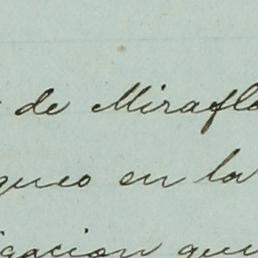 de Mirafl
queo en la
igacion que